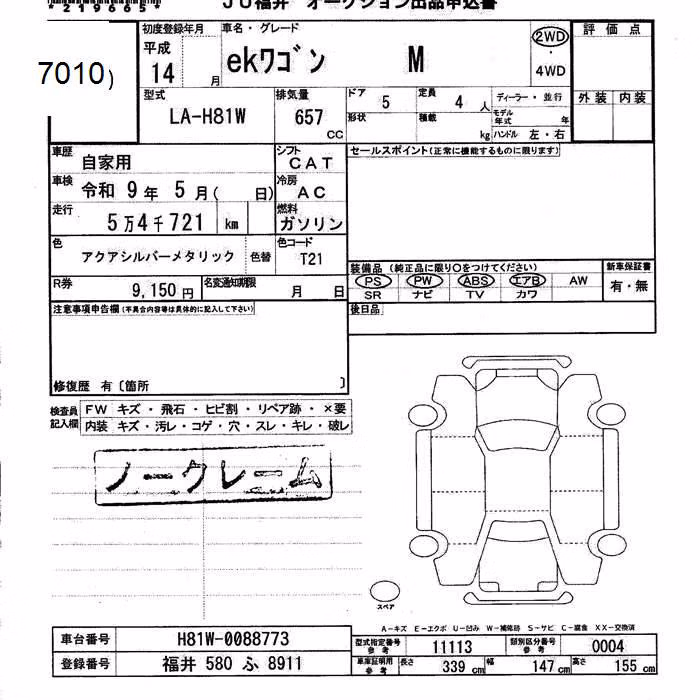 *219665*
JU福井 オークション出品申込書
7010)
初度登録年月 車名・グレード 評価点
平成 14 月
ekワゴン M
2WD ・ 4WD
外装 内装
型式 LA-H81W
排気量 657 CC
ドア 5 定員 4 人 ディーラー・並行
形状 積載 kg モデル年式 年
ハンドル 左・右
車歴 自家用
シフト CAT
セールスポイント(正常に機能するものに限ります)
車検 令和 9 年 5 月( 日)
冷房 AC
走行 5万4千721 km
燃料 ガソリン
色 アクアシルバーメタリック 色替
色コード T21
装備品 (純正品に限り○をつけてください) 新車保証書
PS PW ABS エアB AW 有・無
SR ナビ TV カワ
R券 9,150 円 名変通知期限 月 日
後日品
注意事項申告欄(不具合内容等は具体的に記入して下さい)
修復歴 有〔箇所 〕
検査員記入欄
FW キズ・飛石・ヒビ割・リペア跡・×要
内装 キズ・汚レ・コゲ・穴・スレ・キレ・破レ
ノークレーム
スペア
A-キズ E-エクボ U-凹み W-補修跡 S-サビ C-腐食 XX-交換済
車台番号 H81W-0088773
登録番号 福井 580 ふ 8911
型式指定番号 参考 11113 類別区分番号 参考 0004
車庫証明用 参考 長さ 339 cm 幅 147 cm 高さ 155 cm